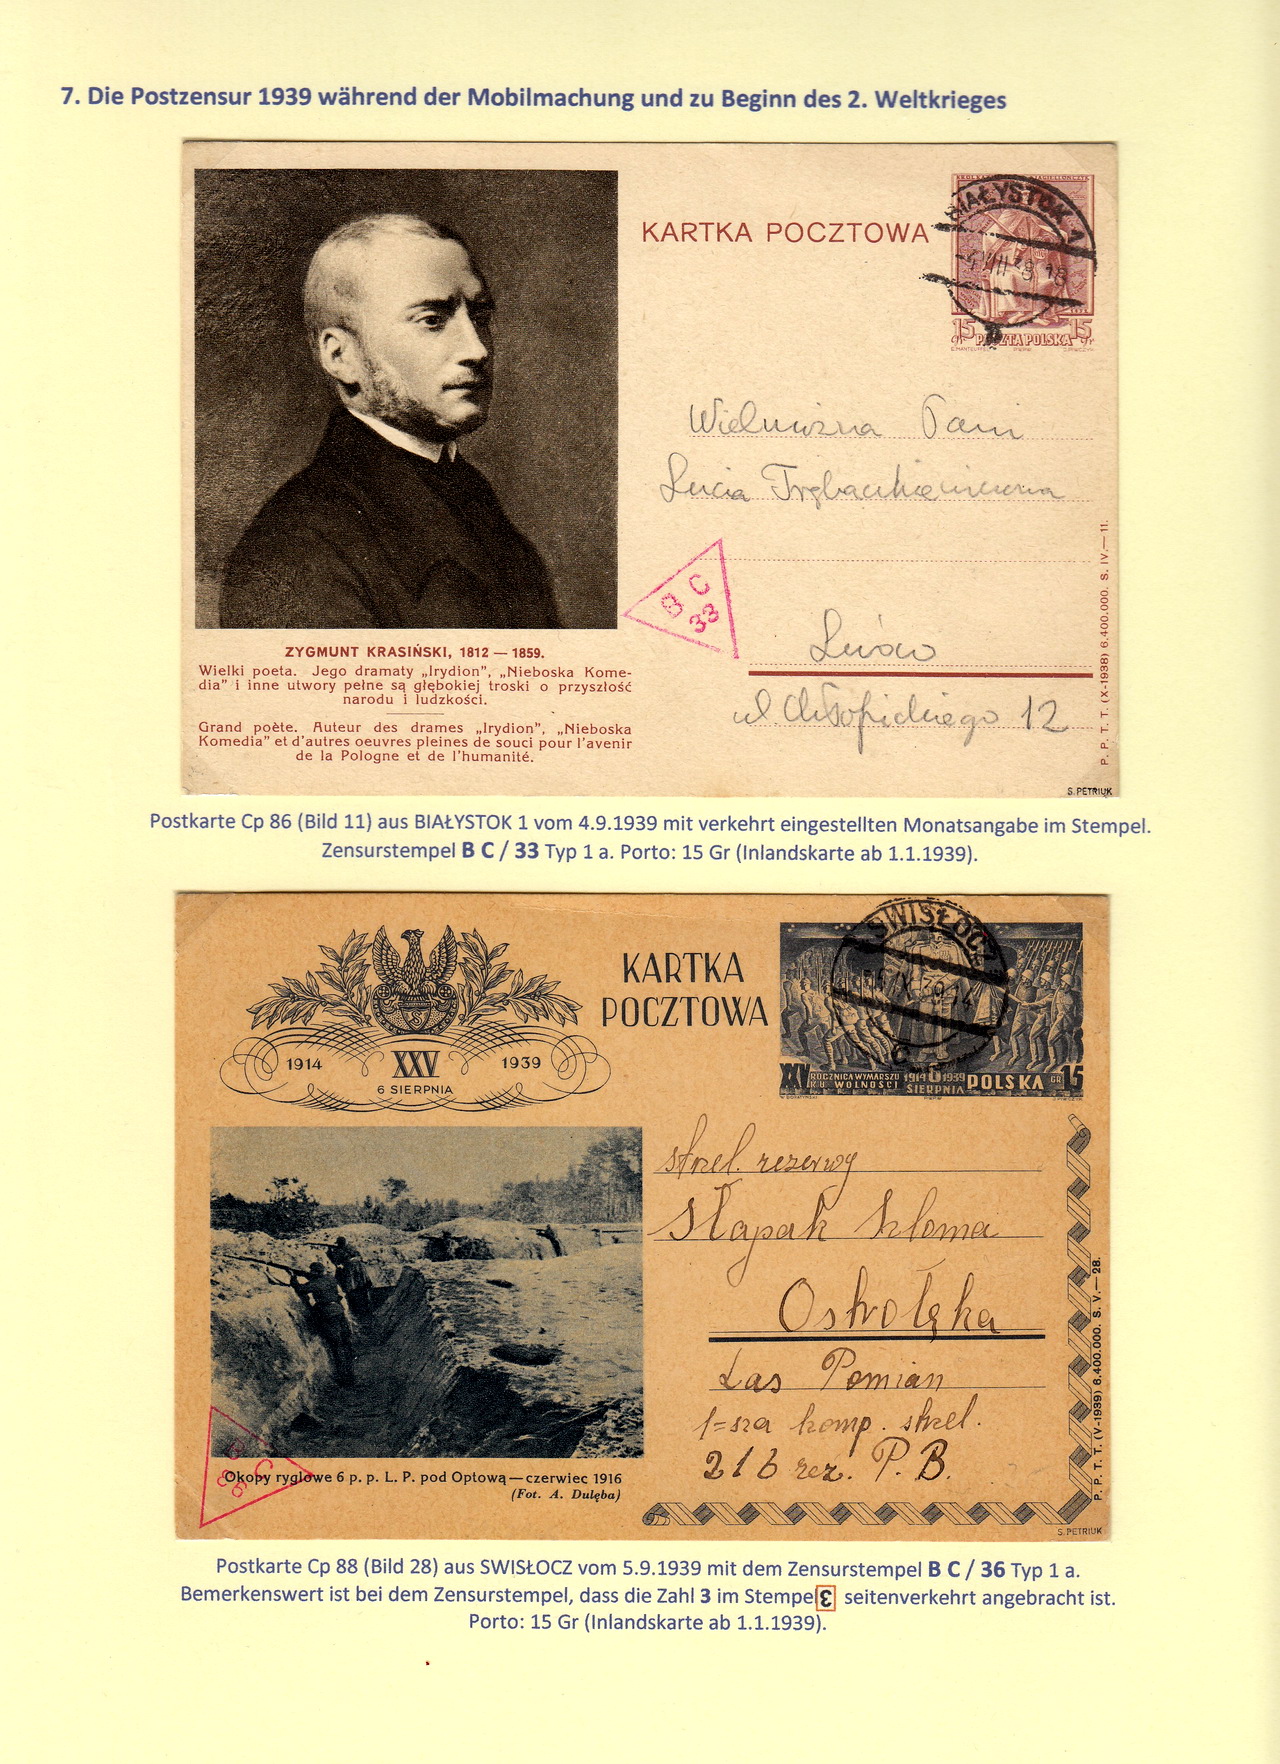 7. Die Postzensur 1939 während der Mobilmachung und zu Beginn des 2. Weltkrieges
KARTKA POCZTOWA
BIAŁYSTOK 1
15 POCZTA POLSKA 15
Wielmożna Pani
Łucja Trębaczkiewiczowa
B C
33
Lwów
ul. Chłopickiego 12
ZYGMUNT KRASIŃSKI, 1812 — 1859.
Wielki poeta. Jego dramaty „Irydion", „Nieboska Kome-
dia" i inne utwory pełne są głębokiej troski o przyszłość
narodu i ludzkości.
Grand poète. Auteur des drames „Irydion", „Nieboska
Komedia" et d'autres oeuvres pleines de souci pour l'avenir
de la Pologne et de l'humanité.
P. P. T. T. (X-1938) 6.400.000. S. IV.— 11.
S. PETRIUK
Postkarte Cp 86 (Bild 11) aus BIAŁYSTOK 1 vom 4.9.1939 mit verkehrt eingestellten Monatsangabe im Stempel.
Zensurstempel B C / 33 Typ 1 a. Porto: 15 Gr (Inlandskarte ab 1.1.1939).
KARTKA
POCZTOWA
SWISŁOCZ
1914 XXV 1939
6 SIERPNIA
XXV ROCZNICA WYMARSZU 1914 6 1939 POLSKA GR 15
KU WOLNOŚCI SIERPNIA
strzel. rezerwy
Słapak Szloma
Ostrołęka
Las Pomian
1-sza komp. strzel.
216 rez. P. B.
Okopy ryglowe 6 p. p. L. P. pod Optową — czerwiec 1916
(Fot. A. Dulęba)
P. P. T. T. (V-1939) 6.400.000. S. V.— 28.
S. PETRIUK
Postkarte Cp 88 (Bild 28) aus SWISŁOCZ vom 5.9.1939 mit dem Zensurstempel B C / 36 Typ 1 a.
Bemerkenswert ist bei dem Zensurstempel, dass die Zahl 3 im Stempel seitenverkehrt angebracht ist.
Porto: 15 Gr (Inlandskarte ab 1.1.1939).